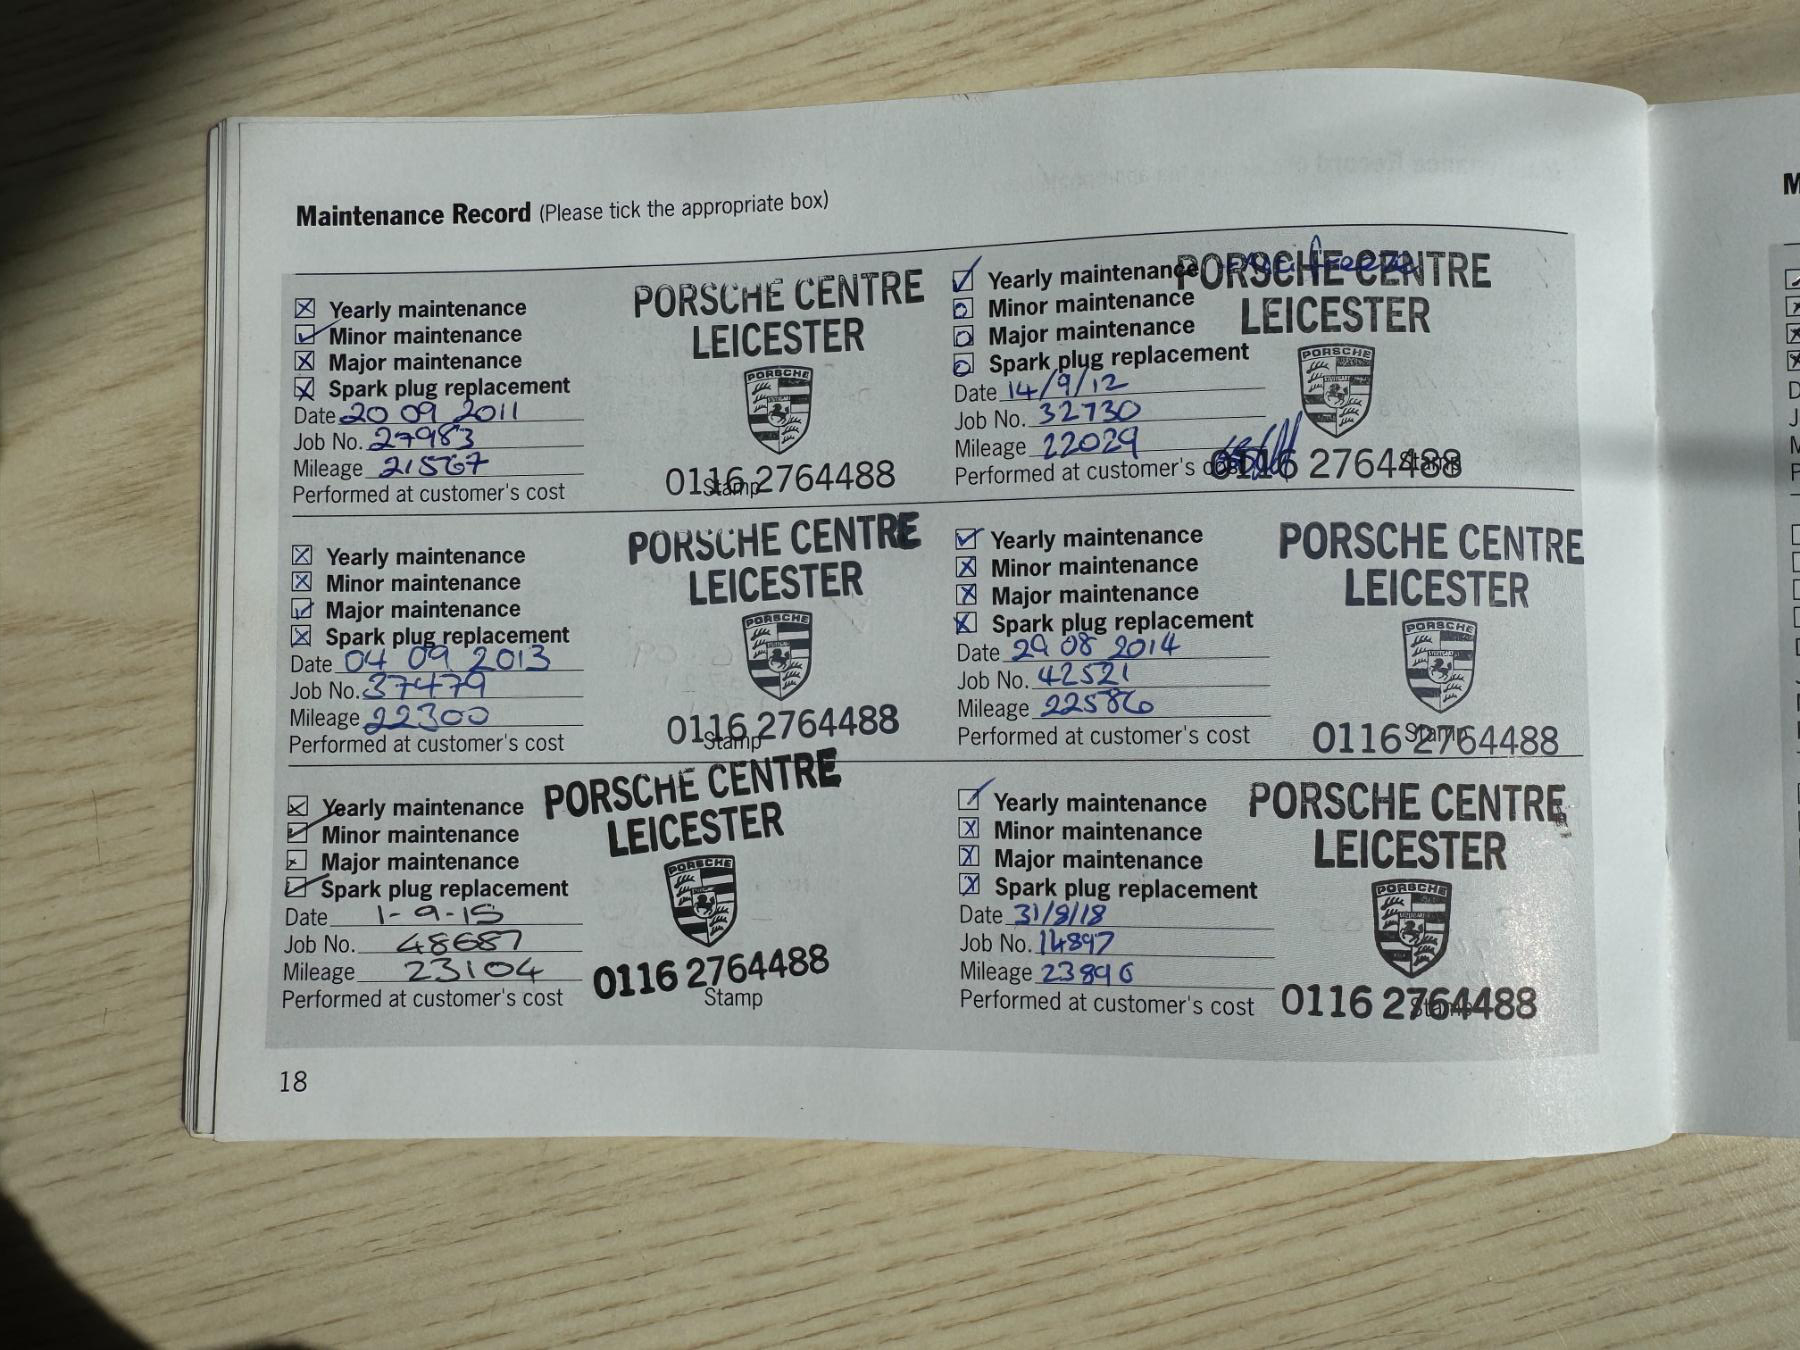 Maintenance Record (Please tick the appropriate box)
Yearly maintenance
Minor maintenance
Major maintenance
Spark plug replacement
Date 20 09 2011
Job No. 27983
Mileage 21567
Performed at customer's cost
PORSCHE CENTRE
LEICESTER
PORSCHE
0116 2764488
Stamp
Yearly maintenance
Minor maintenance
Major maintenance
Spark plug replacement
Date 14/9/12
Job No. 32730
Mileage 22029
Performed at customer's cost
PORSCHE CENTRE
LEICESTER
PORSCHE
0116 2764488
Stamp
Yearly maintenance
Minor maintenance
Major maintenance
Spark plug replacement
Date 04 09 2013
Job No. 37479
Mileage 22300
Performed at customer's cost
PORSCHE CENTRE
LEICESTER
PORSCHE
0116 2764488
Stamp
Yearly maintenance
Minor maintenance
Major maintenance
Spark plug replacement
Date 29 08 2014
Job No. 42521
Mileage 22586
Performed at customer's cost
PORSCHE CENTRE
LEICESTER
PORSCHE
0116 2764488
Stamp
Yearly maintenance
Minor maintenance
Major maintenance
Spark plug replacement
Date 1-9-15
Job No. 48687
Mileage 23104
Performed at customer's cost
PORSCHE CENTRE
LEICESTER
PORSCHE
0116 2764488
Stamp
Yearly maintenance
Minor maintenance
Major maintenance
Spark plug replacement
Date 31/8/18
Job No. 14897
Mileage 23896
Performed at customer's cost
PORSCHE CENTRE
LEICESTER
PORSCHE
0116 2764488
Stamp
18